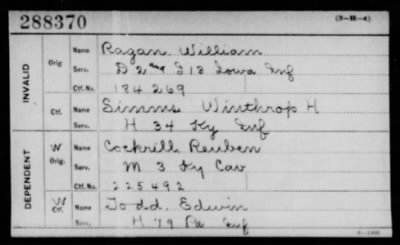 288370
(3-H-4)
INVALID
Orig Name Ragan William
Serv. D 2 & I 18 Iowa Inf
Ctf. No. 184269
Ctf. Name Simms Winthrop H
Serv. H 34 Ky Inf
DEPENDENT
W Orig. Name Cockrill Reuben
Serv. M 3 Ky Cav
Ctf. No. 225492
W Ctf. Name Todd Edwin
Serv. H 79 Pa Inf